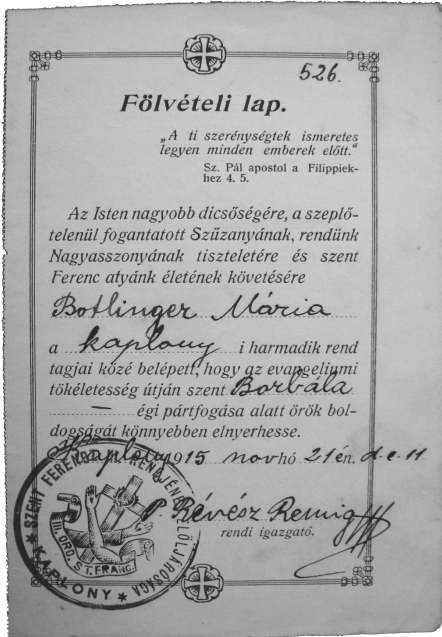 526.
Fölvételi lap.
„A ti szerénységtek ismeretes
legyen minden emberek előtt.“
Sz. Pál apostol a Filippiek-
hez 4. 5.
Az Isten nagyobb dicsőségére, a szeplő-
telenül fogantatott Szűzanyának, rendünk
Nagyasszonyának tiszteletére és szent
Ferenc atyánk életének követésére
Botlinger Mária
a kaplony i harmadik rend
tagjai közé belépett, hogy az evangeliumi
tökéletesség útján szent Borbála
— égi pártfogása alatt örök bol-
dogságát könnyebben elnyerhesse.
Kaplony 1915 nov hó 21 én. d. e. 11
P. Révész Remig
rendi igazgató.
SZENT FERENC III. RENDJÉNEK ELÖLJÁRÓSÁGA
III. ORD. ST. FRANC.
* KAPLONY *